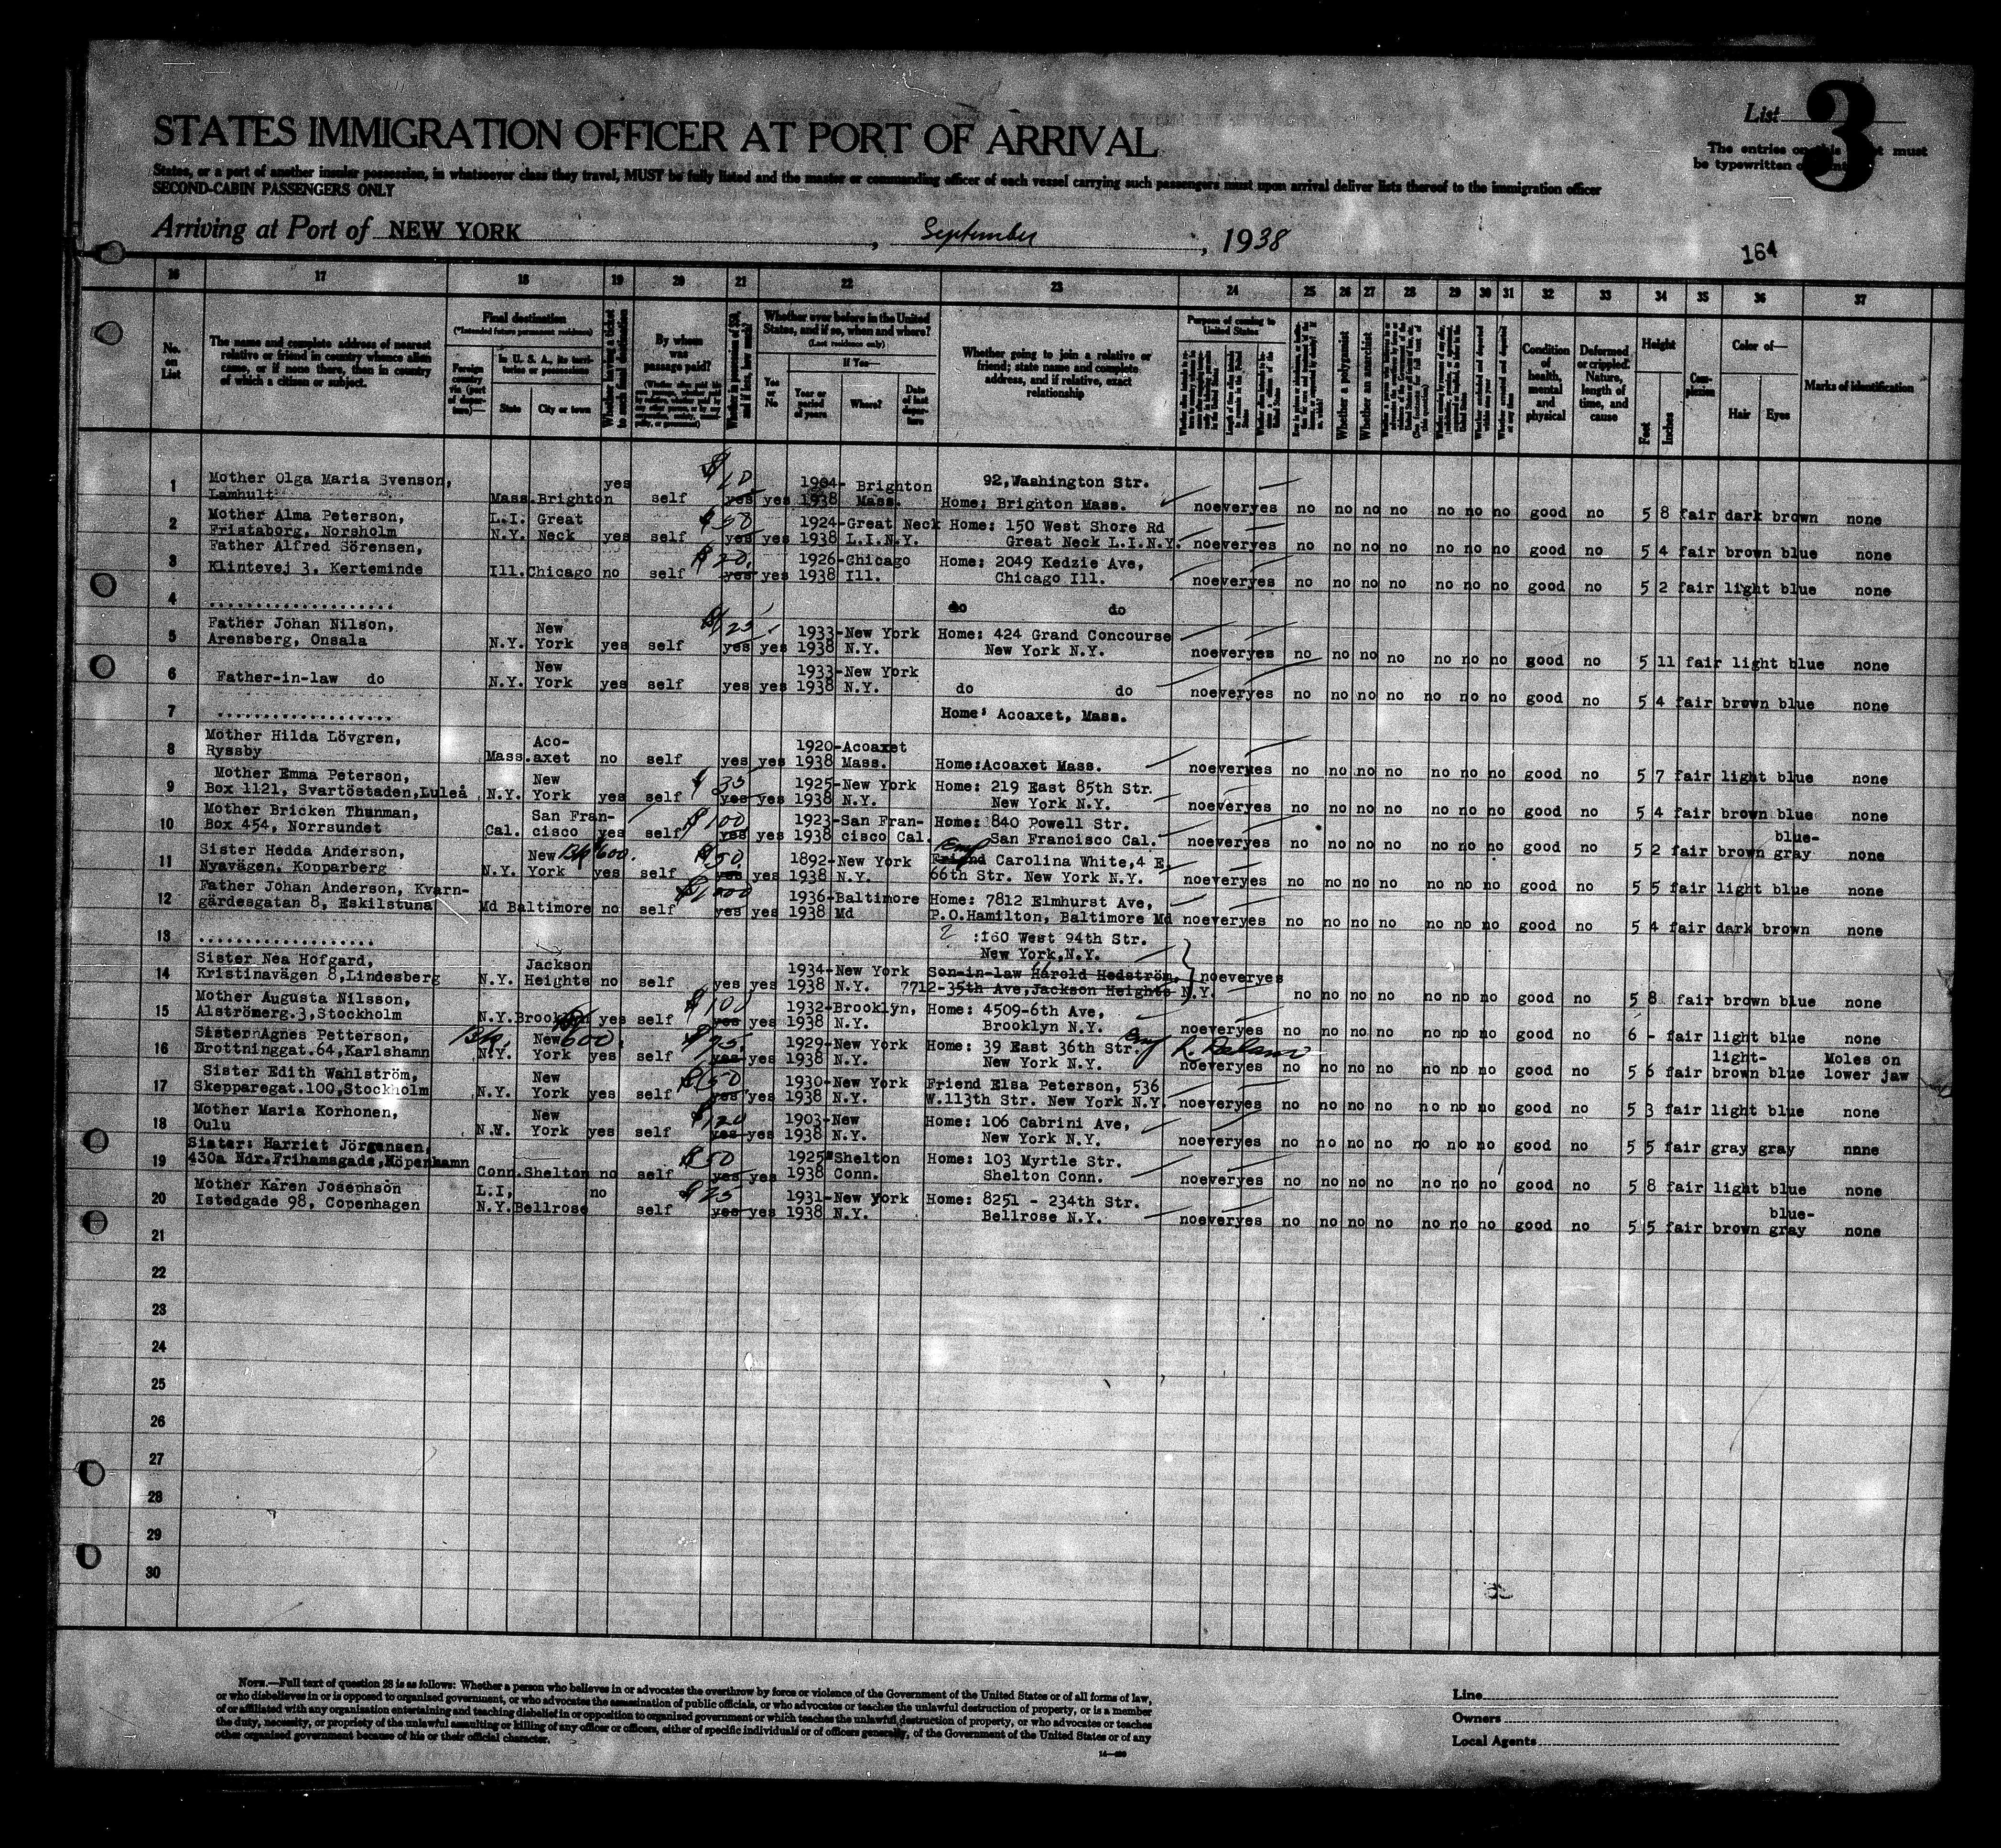 List 3
STATES IMMIGRATION OFFICER AT PORT OF ARRIVAL
The entries on this must
be typewritten
States, or a part of another insular possession, in whatsoever class they travel, MUST be fully listed and the master or commanding officer of each vessel carrying such passengers must upon arrival deliver lists thereof to the immigration officer
SECOND-CABIN PASSENGERS ONLY
Arriving at Port of NEW YORK, September, 1938
164
16 17 18 19 20 21 22 23 24 25 26 27 28 29 30 31 32 33 34 35 36 37
No. on List
The name and complete address of nearest relative or friend in country whence alien came, or if none there, then in country of which a citizen or subject.
Final destination
(*Intended future permanent residence)
Foreign country via (port of departure)—
In U. S. A., its territories or possessions
State City or town
Whether having a ticket to such final destination
By whom was passage paid?
Whether in possession of $50, and if less, how much?
Whether ever before in the United States, and if so, when and where?
(Last residence only)
Yes or No
If Yes—
Year or period of years
Where?
Date of last departure
Whether going to join a relative or friend; state name and complete address, and if relative, exact relationship
Purpose of coming to United States
Whether a polygamist
Whether an anarchist
Condition of health, mental and physical
Deformed or crippled. Nature, length of time, and cause
Height
Feet Inches
Complexion
Color of—
Hair Eyes
Marks of identification
1 Mother Olga Maria Svenson, yes $10 1904- Brighton 92,Washington Str.
Lamhult Mass.Brighton self yes yes 1938 Mass. Home: Brighton Mass. no ever yes no no no no no no no good no 5 8 fair dark brown none
2 Mother Alma Peterson, L.I. Great $50 1924-Great Neck Home: 150 West Shore Rd
Fristaborg, Norsholm N.Y. Neck yes self yes yes 1938 L.I.N.Y. Great Neck L.I.N.Y. no ever yes no no no no no no no good no 5 4 fair brown blue none
3 Father Alfred Sörensen, $20. 1926-Chicago Home: 2049 Kedzie Ave,
Klintevej 3, Kerteminde Ill.Chicago no self yes yes 1938 Ill. Chicago Ill. no ever yes no no no no no no no good no 5 2 fair light blue none
4 .................... do do
5 Father Johan Nilson, New $125 1933-New York Home: 424 Grand Concourse
Arensberg, Onsala N.Y. York yes self yes yes 1938 N.Y. New York N.Y. no ever yes no no no no no no no good no 5 11 fair light blue none
6 New 1933-New York
Father-in-law do N.Y. York yes self yes yes 1938 N.Y. do do no ever yes no no no no no no no good no 5 4 fair brown blue none
7 ................... Home: Acoaxet, Mass.
8 Mother Hilda Lövgren, Aco- 1920-Acoaxet
Ryssby Mass.axet no self yes yes 1938 Mass. Home:Acoaxet Mass. no ever yes no no no no no no no good no 5 7 fair light blue none
9 Mother Emma Peterson, New $35 1925-New York Home: 219 East 85th Str.
Box 1121, Svartöstaden,Luleå N.Y. York yes self yes yes 1938 N.Y. New York N.Y. no ever yes no no no no no no no good no 5 4 fair brown blue none
10 Mother Bricken Thunman, San Fran- $100 1923-San Fran- Home: 840 Powell Str.
Box 454, Norrsundet Cal. cisco yes self yes yes 1938 cisco Cal. San Francisco Cal. no ever yes no no no no no no no good no 5 2 fair brown blue-gray none
11 Sister Hedda Anderson, New 600. $50. 1892-New York Friend Carolina White,4 E.
Nyavägen, Kopparberg N.Y. York yes self yes yes 1938 N.Y. 66th Str. New York N.Y. no ever yes no no no no no no no good no 5 5 fair light blue none
12 Father Johan Anderson, Kvarn- 1936-Baltimore Home: 7812 Elmhurst Ave,
gärdesgatan 8, Eskilstuna Md Baltimore no self yes yes 1938 Md P.O.Hamilton, Baltimore Md no ever yes no no no no no no no good no 5 4 fair dark brown none
13 ................... :160 West 94th Str.
New York,N.Y.
14 Sister Nea Hofgard, Jackson 1934-New York Son-in-law Harold Hedström,
Kristinavägen 8,Lindesberg N.Y. Heights no self yes yes 1938 N.Y. 7712-35th Ave,Jackson Heights N.Y. no ever yes no no no no no no no good no 5 8 fair brown blue none
15 Mother Augusta Nilsson, $100 1932-Brooklyn, Home: 4509-6th Ave,
Alströmerg.3,Stockholm N.Y.Brooklyn yes self yes yes 1938 N.Y. Brooklyn N.Y. no ever yes no no no no no no no good no 6 - fair light blue none
16 Sister Agnes Petterson, New 600. $75. 1929-New York Home: 39 East 36th Str.
Brottninggat.64,Karlshamn N.Y. York yes self yes yes 1938 N.Y. New York N.Y. no ever yes no no no no no no no good no 5 6 fair light-brown blue Moles on lower jaw
17 Sister Edith Wahlström, New $150 1930-New York Friend Elsa Peterson, 536
Skepparegat.100,Stockholm N.Y. York yes self yes yes 1938 N.Y. W.113th Str. New York N.Y. no ever yes no no no no no no no good no 5 3 fair light blue none
18 Mother Maria Korhonen, New $120 1903-New Home: 106 Cabrini Ave,
Oulu N.Y. York yes self yes yes 1938 N.Y. New York N.Y. no ever yes no no no no no no no good no 5 5 fair gray gray nnne
19 Sister: Harriet Jörgensen, $50 1925 Shelton Home: 103 Myrtle Str.
430a Ndr.Frihamsgade,Köpenhamn Conn.Shelton no self yes yes 1938 Conn. Shelton Conn. no ever yes no no no no no no no good no 5 8 fair light blue none
20 Mother Karen Josephson L.I, no $25 1931-New York Home: 8251 - 234th Str.
Istedgade 98, Copenhagen N.Y.Bellrose self yes yes 1938 N.Y. Bellrose N.Y. no ever yes no no no no no no no good no 5 5 fair brown blue-gray none
21
22
23
24
25
26
27
28
29
30
NOTE.—Full text of question 28 is as follows: Whether a person who believes in or advocates the overthrow by force or violence of the Government of the United States or of all forms of law,
or who disbelieves in or is opposed to organized government, or who advocates the assassination of public officials, or who advocates or teaches the unlawful destruction of property, or is a member
of or affiliated with any organization entertaining and teaching disbelief in or opposition to organized government or which teaches the unlawful destruction of property, or who advocates or teaches
the duty, necessity, or propriety of the unlawful assaulting or killing of any officer or officers, either of specific individuals or of officers generally, of the Government of the United States or of any
other organized government because of his or their official character.
Line
Owners
Local Agents